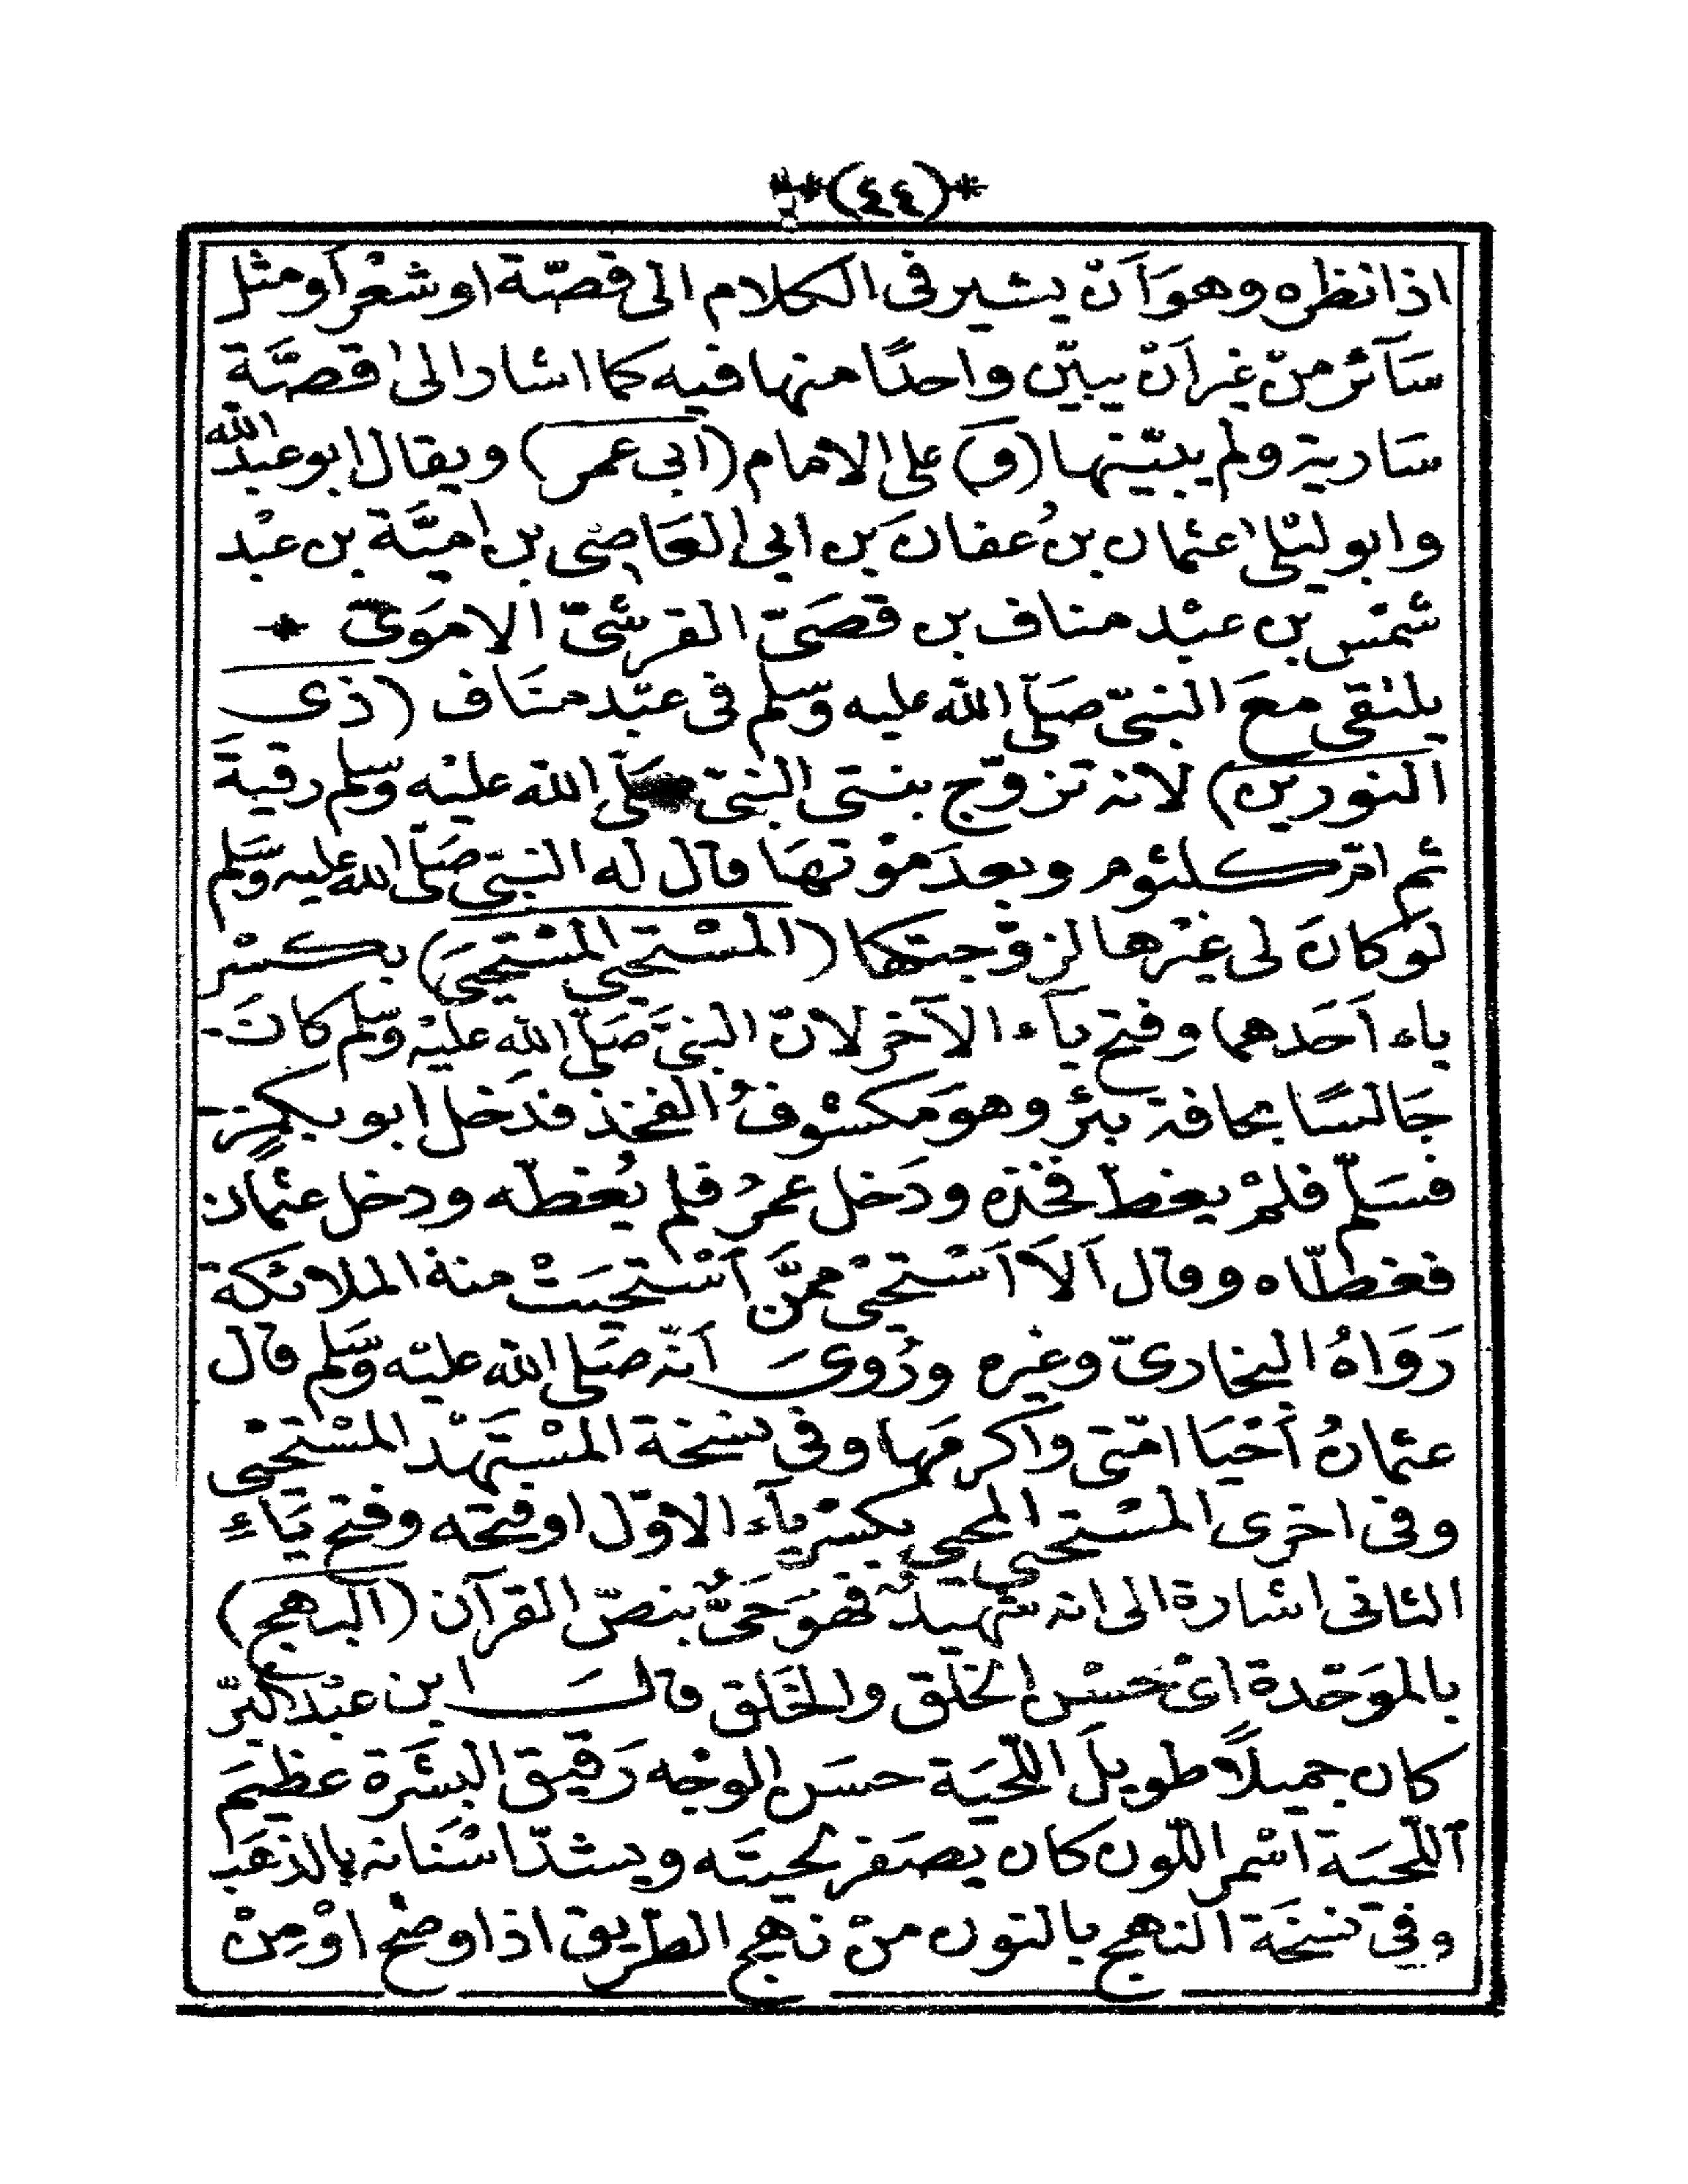 *(٤٤)*
اذا نظره وهوَ أنْ يشير فى الكلام الى قصّة او شعْر أو مثل
سَآئر منْ غير اَنْ يبيّن واحدًا منها فيه كما اشار الى قصَّة
سَارية ولم يبيّنها (وَ) على الامام (ابى عمر) ويقال ابو عبْد الله
وابو ليْلى عثمان بنُ عفانَ بن ابى العَاصِى بن اميَّة بن عبْد
شمْس بن عبْد مناف بن قصَىّ القرشىّ الامَوىّ *
يلتقى معَ النبىّ صَلّى الله عليه وسّلم فى عبْد منَاف (ذى
النورين) لانه تزوّج بنتى النبىّ صَلّى الله عليْه وسّلم رقيةَ
ثم امّ كلثوم وبعدَ موْتهَا قال له النبىّ صَلّى الله عليه وسَّلم
لوْ كانَ لى غيْرها لزوّجتكها (المسْتحيِى المسْتحيَى) بكسْر
ياء اَحَدهما وفتح يَآء الآخر لانّ النبىَّ صَلّى الله عليْه وسّلم كانَ
جَالسًا بحافة بئْر وهوَ مكشوْفُ الفخذ فدَخل ابو بكرٍ
فسَلّم فلمْ يغطّ فخذه ودَخل عمرُ فلم يُغطّه ودخل عثمان
فغطّاه وقال اَلاَ اَسْتحيْى ممَّنْ اَسْتحيَتْ منهُ الملائكة
رَوَاهُ البخارىّ وغيره ورُوىَ اَنّه صَلى الله عليْه وسَّلم قال
عثمانُ اَحْيَا امّتى واَكرمَها وفى نسْخة المسْتَهْد المسْتحْيى
وفى اخرى المسْتحيى المحيى بكسْر يآء الاوّل او فتحه وفتح يَاءِ
الثانى اشارة الى انه شهيدٌ فهوَ حَىٌّ بنصّ القرآن (البَاهج)
بالموَحّدة اىْ حسْن الخَلْق والخُلق قالَ ابن عبْد البَرّ
كان جميلًا طويلَ اللّحيَة حسَن الوجْه رَقيق البشَرة عظيمَ
اللّحيَة اسْمر اللّون كان يصَفر لحيتَه ويشدّ اسْنَانه بالذهَب
وفى نسْخَة النهج بالنون منْ نهج الطّريق اذا وضح اوْ مِنْ